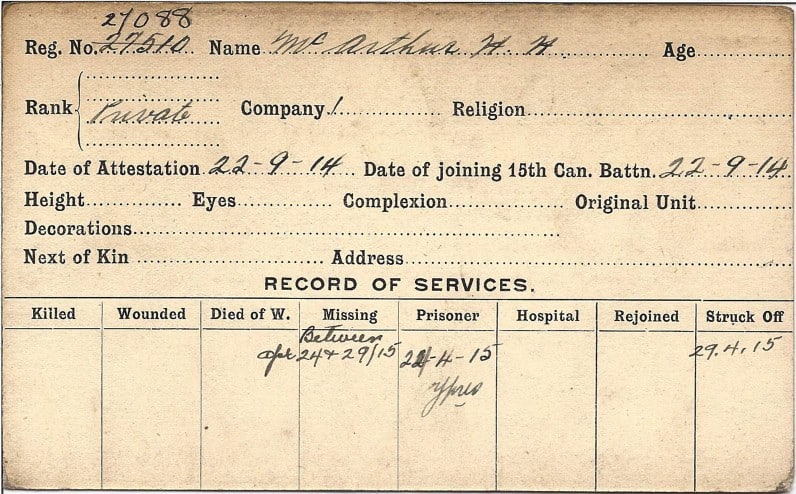 27088
Reg. No. 27510 Name Mc Arthur H. H. Age
Rank Private Company 1 Religion
Date of Attestation 22-9-14 Date of joining 15th Can. Battn. 22-9-14
Height Eyes Complexion Original Unit
Decorations
Next of Kin Address
RECORD OF SERVICES.
Killed Wounded Died of W. Missing Prisoner Hospital Rejoined Struck Off
Between
Apr 24 + 29/15 24-4-15 29.4.15
Ypres